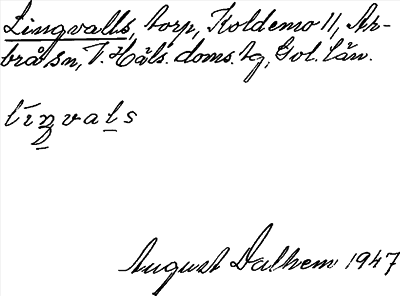 Lingvalls, torp, Koldemo 11, Ar-
brå sn, V. Häls. doms. tg, Gvl. län.
lìŋvaḷs
August Dalhem 1947